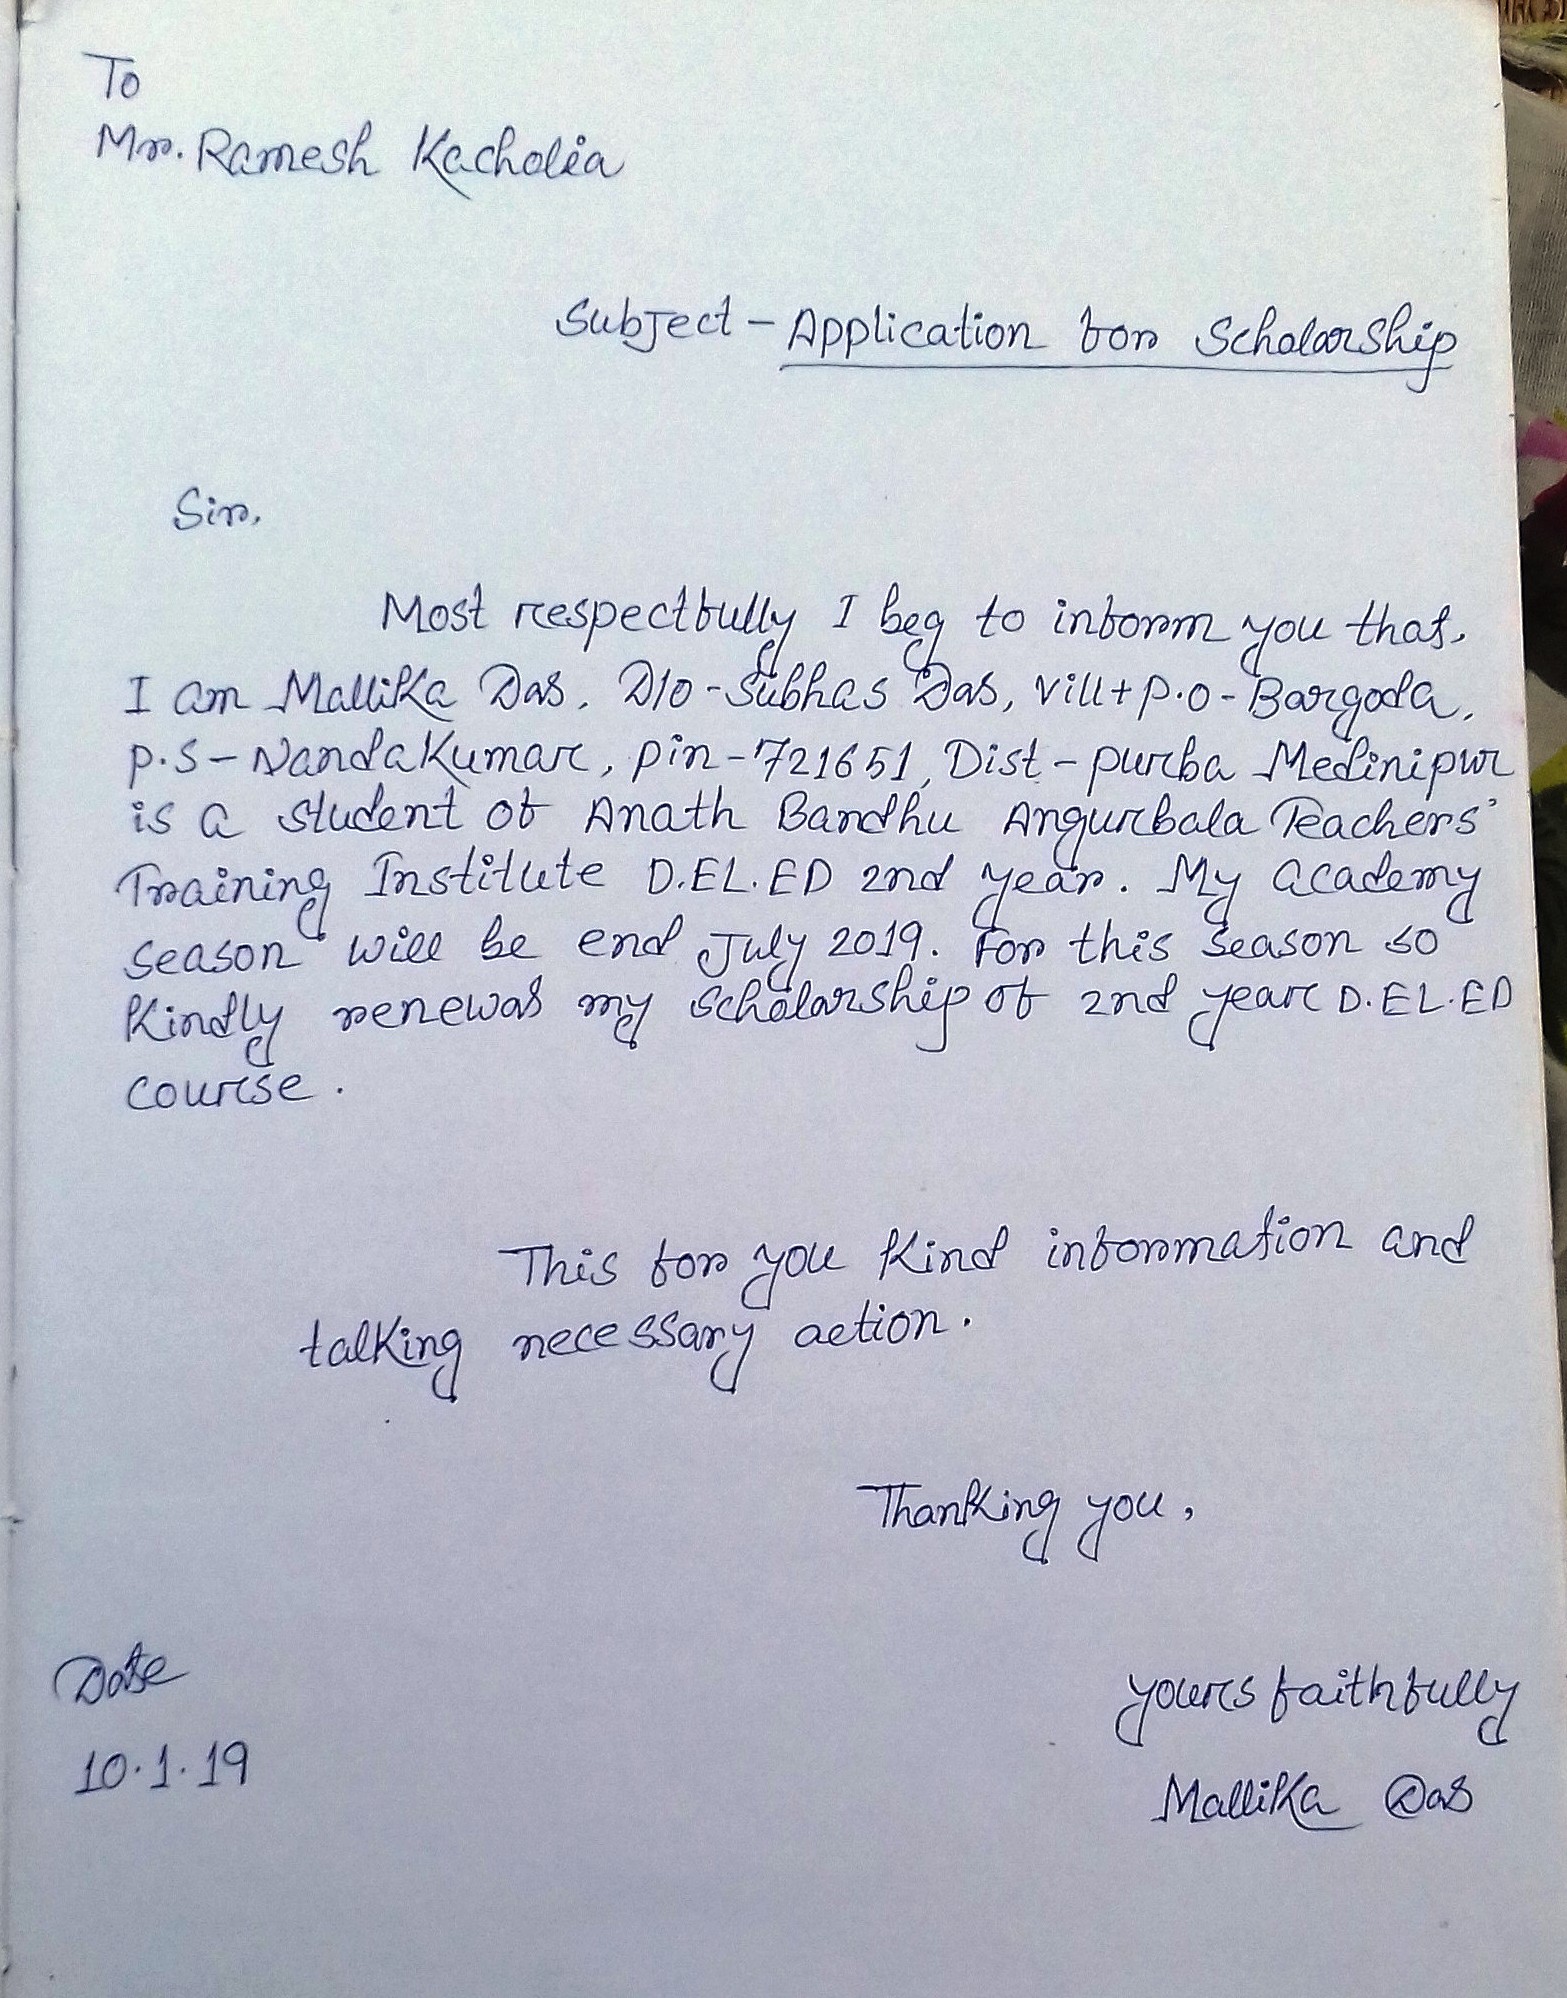 To
Mr. Ramesh Kacholia
Subject - Application for Scholarship
Sir,
Most respectfully I beg to inform you that,
I am Mallika Das, D/O - Subhas Das, vill + P.O - Bargoda,
P.S - Nandakumar, pin - 721651, Dist - purba Medinipur
is a student of Anath Bandhu Angurbala Teachers'
Training Institute D.EL.ED 2nd year. My academy
season will be end July 2019. For this season so
kindly renewas my scholarship of 2nd year D.EL.ED
course.
This for you kind information and
talking necessary action.
Thanking you,
Date
10.1.19
yours faithfully
Mallika Das